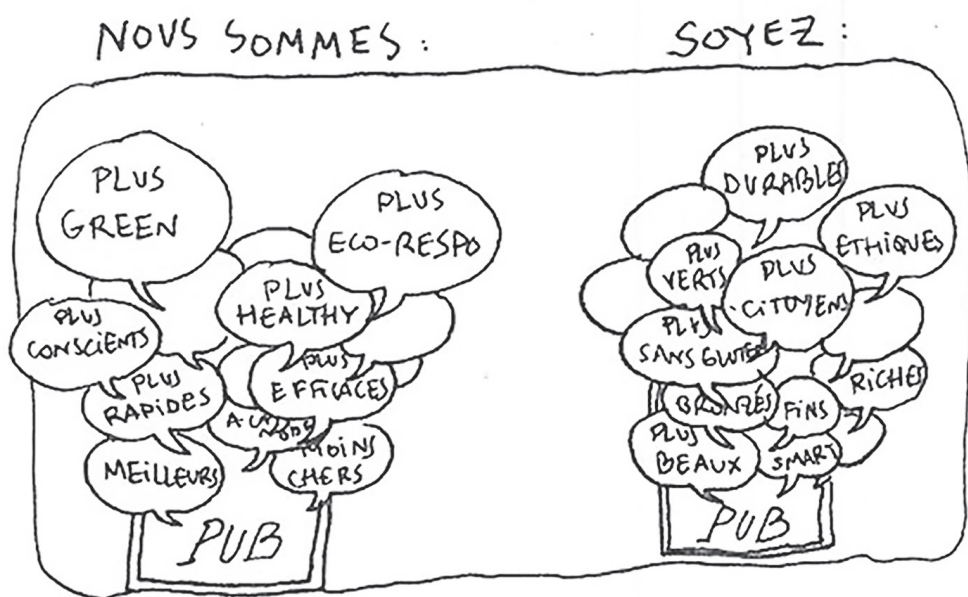 NOUS SOMMES :
PLUS
GREEN
PLUS
ECO-RESPO
PLUS
HEALTHY
PLUS
CONSCIENTS
PLUS
EFFICACES
PLUS
RAPIDES
MOINS
CHERS
MEILLEURS
PUB
SOYEZ :
PLUS
DURABLES
PLUS
ETHIQUES
PLUS
VERTS
PLUS
CITOYENS
PLUS
SANS GLUTEN
RICHES
BRONZÉS
FINS
PLUS
BEAUX
SMART
PUB